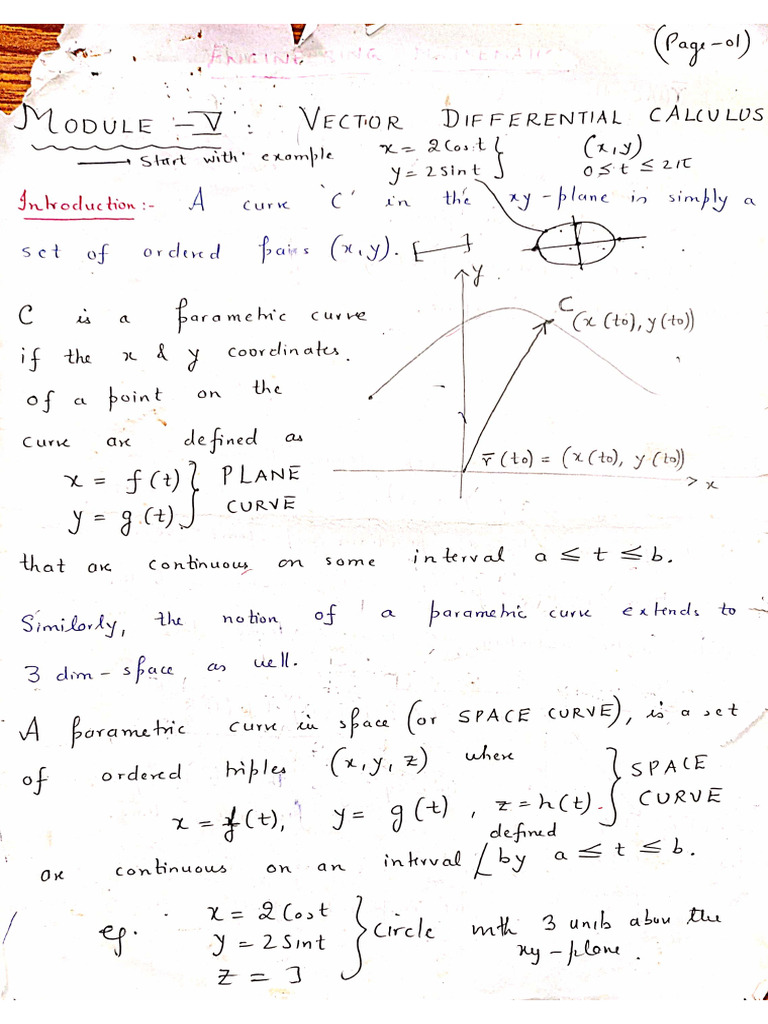 (Page-01)
ENGINEERING MATHEMATICS
MODULE -V : VECTOR DIFFERENTIAL CALCULUS
→ Start with example x = 2 Cos t } (x,y)
y = 2 sin t } 0 ≤ t ≤ 2π
Introduction:- A curve 'C' in the xy-plane is simply a
set of ordered pairs (x,y).
y
C is a parametric curve
C (x(to), y(to))
if the x & y coordinates.
of a point on the
curve are defined as
r̄(to) = (x(to), y(to))
x
x = f(t) } PLANE
y = g(t) } CURVE
that are continuous on some interval a ≤ t ≤ b.
Similarly, the notion of a parametric curve extends to
3 dim-space as well.
A parametric curve in space (or SPACE CURVE), is a set
of ordered triples (x,y,z) where
x = f(t), y = g(t), z = h(t). } SPACE CURVE
are continuous on an interval defined by a ≤ t ≤ b.
eg. x = 2 Cos t
y = 2 Sin t } circle with 3 units above the
z = 3 xy-plane.